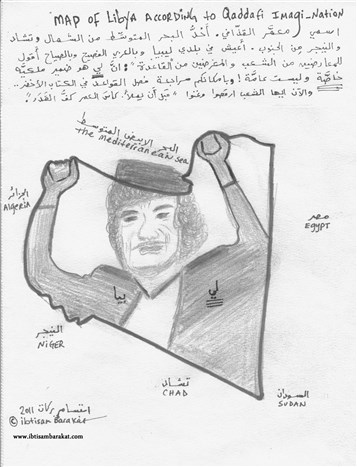 MAP OF LIBYA ACCORDING to QADDAFI IMAGI-NATION
اسمي معمّر القذافي. أحدُّ البحر المتوسّط من الشمال وتشاد
والنيجر من الجنوب. أعيش في بلدي ليبيا وبالعربي الفصيح وبالصياح أقول
للمعارضين من الشعب والمعترضين من القاعدة: إنّ لي هو ضمير ملكيّة
خاصّة وليست عامّة! وبإمكانكم مراجعة فصل القواعد في الكتاب الأخضر..
والآن أيها الشعب ارقصوا وغنوا "قبل أن يملأ كأسَ العمر كفُّ القدَر".
البحر الابيض المتوسط
the mediterranean sea
الجزائر
ALGERIA
مصر
EGYPT
لي
بيا
النيجر
NIGER
تشاد
CHAD
السودان
SUDAN
ابتسام بركات 2011
© ibtisam barakat
www.ibtisambarakat.com